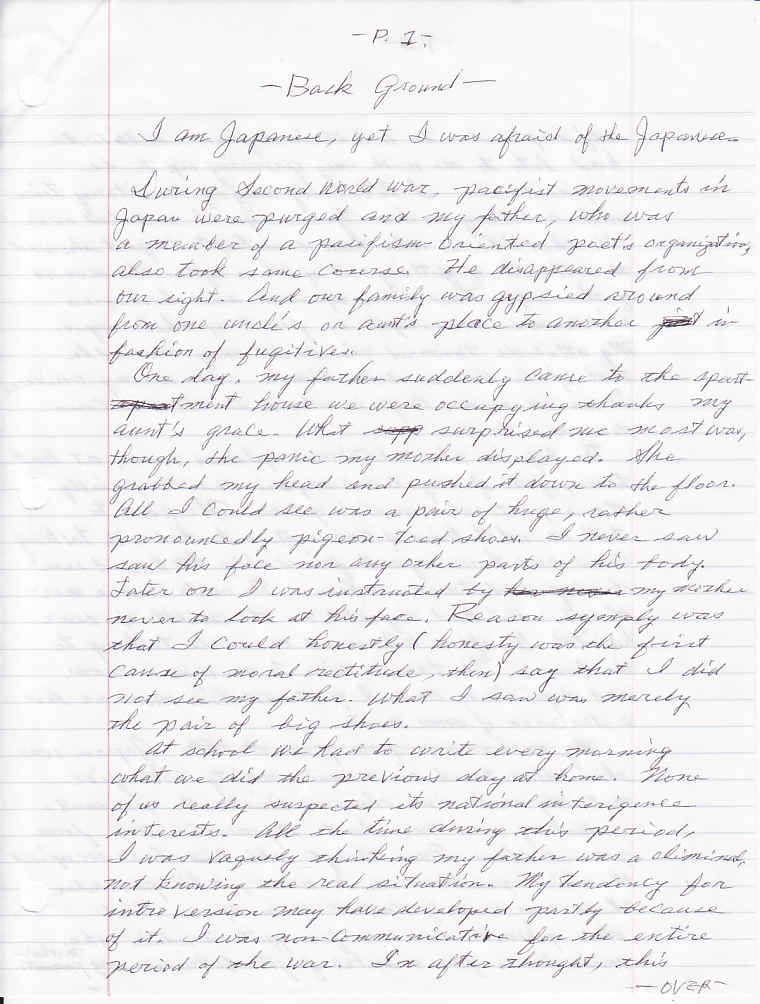 - P. 1. -
- Back Ground -
I am Japanese, yet I was afraid of the Japanese.
During Second World War, pacifist movements in
Japan were purged and my father, who was
a member of a pacifism-oriented poet's organization,
also took same course. He disappeared from
our sight. And our family was gypsied around
from one uncle's or aunt's place to another in
fashion of fugitives.
One day, my father suddenly came to the apart-
tment house we were occupying thanks my
aunt's grace. What surprised me most was,
though, the panic my mother displayed. She
grabbed my head and pushed it down to the floor.
All I could see was a pair of huge, rather
pronouncedly pigeon-toed shoes. I never saw
saw his face nor any other parts of his body.
Later on I was instructed by my mother
never to look at his face. Reason symply was
that I could honestly (honesty was the first
cause of moral rectitude, then) say that I did
not see my father. What I saw was merely
the pair of big shoes.
At school we had to write every morning
what we did the previous day at home. None
of us really suspected its national interigence
interests. All the time during this period,
I was vaguely thinking my father was a climinal,
not knowing the real situation. My tendency for
introversion may have developed partly because
of it. I was non-communicative for the entire
period of the war. In after thought, this
- OVER -